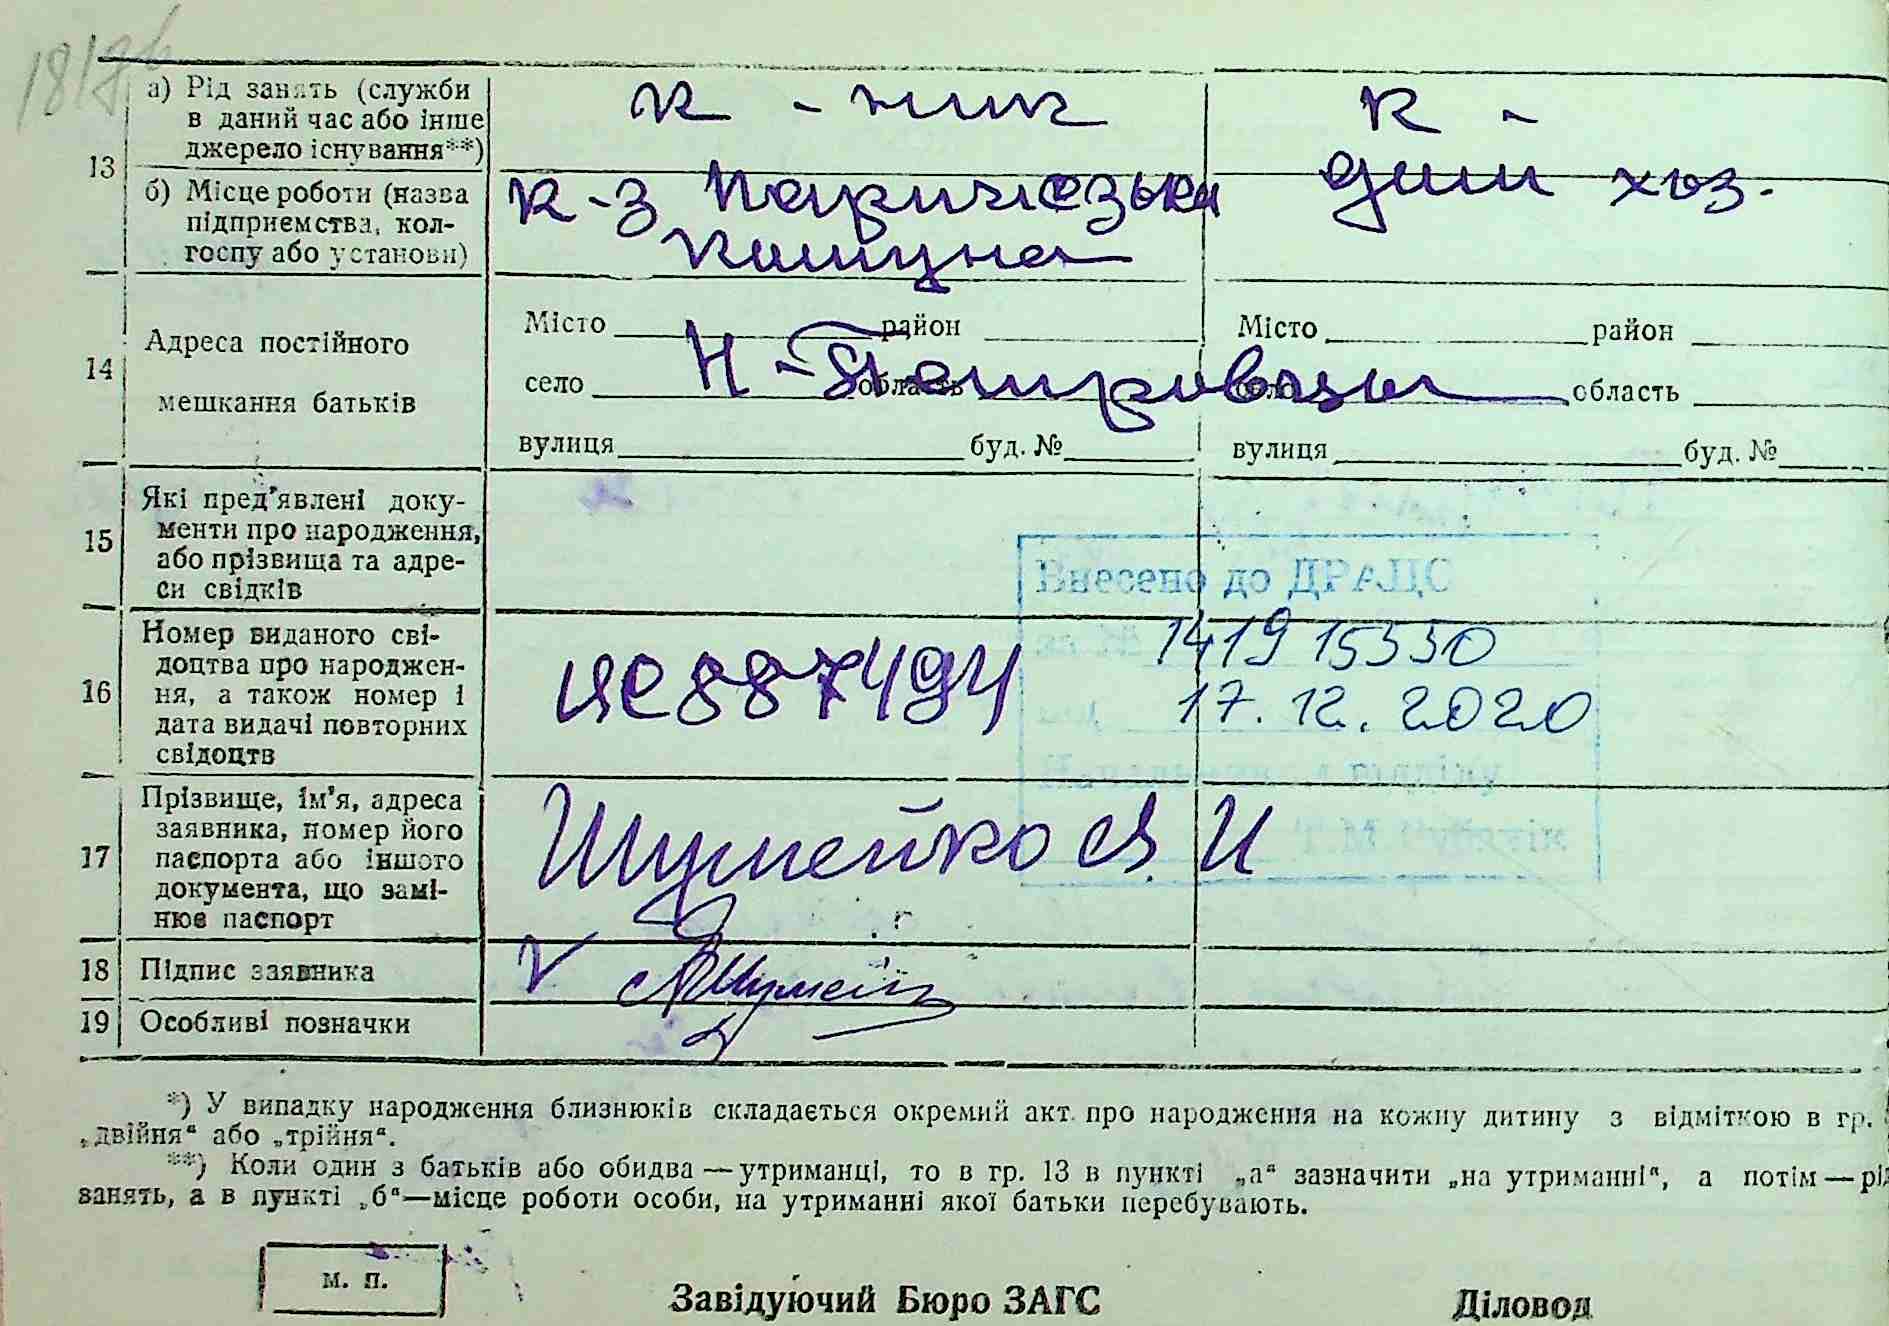 а) Рід занять (служби в даний час або інше джерело існування**)
к - ник
к -
13
б) Місце роботи (назва підприємства, колгоспу або установи)
к-з Паризька Комуна
дом хоз.
14
Адреса постійного мешкання батьків
Місто район
село область
Н-Петровцы
вулиця буд. №
Місто район
область
вулиця буд. №
15
Які пред'явлені документи про народження, або прізвища та адреси свідків
Внесено до ДРАЦС
за № 141915330
17.12.2020
16
Номер виданого свідоцтва про народження, а також номер і дата видачі повторних свідоцтв
ЦС887494
17
Прізвище, ім'я, адреса заявника, номер його паспорта або іншого документа, що замінює паспорт
Шумейко Я. И
18 Підпис заявника
V
19 Особливі позначки
*) У випадку народження близнюків складається окремий акт про народження на кожну дитину з відміткою в гр.
„двійня“ або „трійня“.
**) Коли один з батьків або обидва — утриманці, то в гр. 13 в пункті „а“ зазначити „на утриманні“, а потім — рід
занять, а в пункті „б“—місце роботи особи, на утриманні якої батьки перебувають.
м. п.
Завідуючий Бюро ЗАГС
Діловод